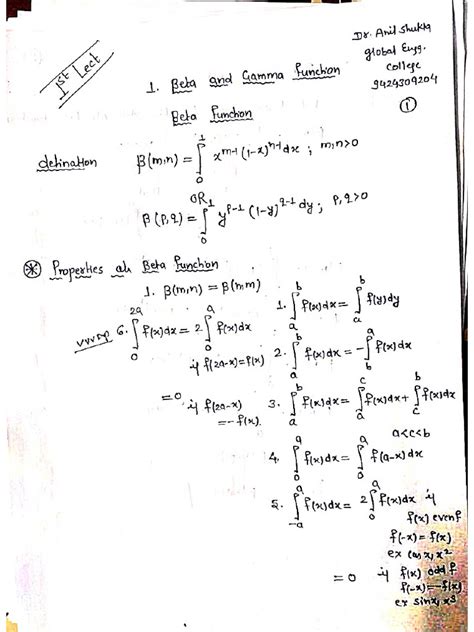 1st Lect
Dr. Anil Shukla
Global Eng.
College
9424309204
1
1. Beta and Gamma Function
Beta Function
defination β(m,n) = ∫₀¹ x^{m-1} (1-x)^{n-1} dx ; m,n>0
OR
β(p,q) = ∫₀¹ y^{p-1} (1-y)^{q-1} dy ; p,q>0
⊛ Properties of Beta Function
1. β(m,n) = β(n,m)
VVVSP 6. ∫₀^{2a} f(x)dx = 2∫₀^a f(x)dx
if f(2a-x)=f(x)
=0 if f(2a-x)
=-f(x).
1. ∫_a^b f(x)dx = ∫_a^b f(y)dy
2. ∫_a^b f(x)dx = -∫_b^a f(x)dx
3. ∫_a^b f(x)dx = ∫_a^c f(x)dx + ∫_c^b f(x)dx
a<c<b
4. ∫₀^a f(x)dx = ∫₀^a f(a-x)dx
5. ∫_{-a}^a f(x)dx = 2∫₀^a f(x)dx if
f(x) even f
f(-x)=f(x)
ex cosx, x²
=0 if f(x) odd f
f(-x)=-f(x)
ex sinx, x³